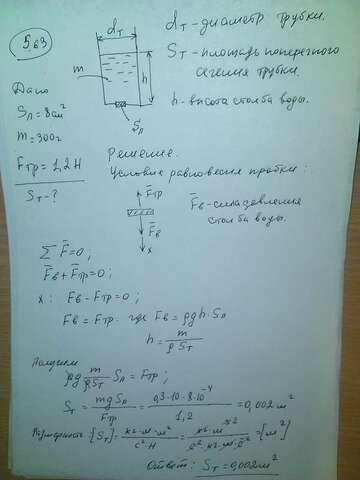 5.63
dт - диаметр трубки.
Sт - площадь поперечного
сечения трубки.
h - высота столба воды.
dт
m
h
Sл
Дано
Sл = 8см²
m = 300г
Fтр = 1,2 Н
Sт - ?
Решение.
Условие равновесия пробки:
F̄тр
F̄в
x
F̄в - сила давления
столба воды.
∑ F̄ = 0;
F̄в + F̄тр = 0;
x: Fв - Fтр = 0;
Fв = Fтр. где Fв = ρgh·Sл
h = m / ρSт
Получим
ρg m/ρSт Sл = Fтр;
Sт = mgSл / Fтр = 0,3·10·8·10⁻⁴ / 1,2 = 0,002 м²
Размерность {Sт} = кг·м·м² / с²·Н = [м²]
Ответ: Sт = 0,002 м²